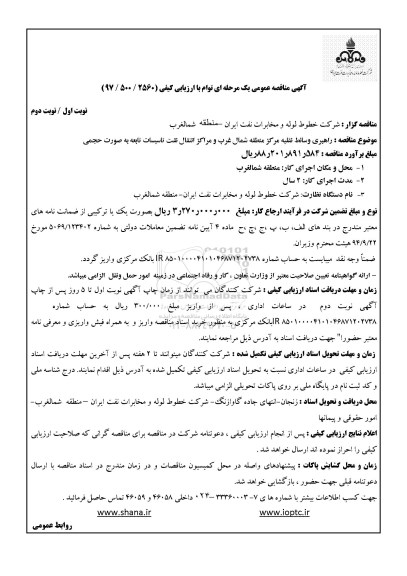 آگهی مناقصه عمومی یک مرحله ای توام با ارزیابی کیفی (۲۵۶۰ / ۵۰۰ / ۹۷)
نوبت اول / نوبت دوم
مناقصه گزار : شرکت خطوط لوله و مخابرات نفت ایران -منطقه شمالغرب
موضوع مناقصه : راهبری وسائط نقلیه مرکز منطقه شمال غرب و مراکز انتقال نفت تاسیسات تابعه به صورت حجمی
مبلغ برآورد مناقصه : ۵۸۴ر۸۹۱ر۲۰۱ر۸۸ریال
۱- محل و مکان اجرای کار: منطقه شمالغرب
۲- مدت اجرای کار: ۲ سال
۳- نام دستگاه نظارت: شرکت خطوط لوله و مخابرات نفت ایران-منطقه شمالغرب
نوع و مبلغ تضمین شرکت در فرآیند ارجاع کار: مبلغ ۰۰۰ر۰۰۰ر۲۷۰ر۳ ریال بصورت یک یا ترکیبی از ضمانت نامه های
معتبر مندرج در بند های الف، ب، پ ،ج، چ، ح ماده ۴ آیین نامه تضمین معاملات دولتی به شماره ۵۰۶۹/۱۲۳۴۰۲ مورخ
۹۴/۹/۲۲ هیئت محترم وزیران.
ضمناً وجه نقد میبایست به حساب شماره IR ۸۵۰۱۰۰۰۰۴۱۰۱۰۴۶۸۷۱۲۰۴۷۳۸ بانک مرکزی واریز گردد.
- ارائه گواهینامه تعیین صلاحیت معتبر از وزارت تعاون ، کار و رفاه اجتماعی در زمینه امور حمل ونقل الزامی میباشد.
زمان و مهلت دریافت اسناد ارزیابی کیفی : شرکت کنندگان می توانند از زمان چاپ آگهی نوبت اول تا ۵ روز پس از چاپ
آگهی نوبت دوم در ساعات اداری ، پس از واریز مبلغ ۳۰۰/۰۰۰ ریال به حساب شماره
IR۸۵۰۱۰۰۰۰۴۱۰۱۰۴۶۸۷۱۲۰۴۷۳۸بانک مرکزی به منظور خرید اسناد مناقصه واریز و به همراه فیش واریزی و معرفی نامه
معتبر حضورا" جهت دریافت اسناد به آدرس ذیل مراجعه نمایند.
زمان و مهلت تحویل اسناد ارزیابی کیفی تکمیل شده : شرکت کنندگان میتوانند تا ۲ هفته پس از آخرین مهلت دریافت اسناد
ارزیابی کیفی در ساعات اداری نسبت به تحویل اسناد ارزیابی کیفی تکمیل شده به آدرس ذیل اقدام نمایند. درج شناسه ملی
و کد ثبت نام در پایگاه ملی بر روی پاکات تحویلی الزامی میباشد.
محل دریافت و تحویل اسناد : زنجان-انتهای جاده گاوازنگ- شرکت خطوط لوله و مخابرات نفت ایران –منطقه شمالغرب-
امور حقوقی و پیمانها
اعلام نتایج ارزیابی کیفی : پس از انجام ارزیابی کیفی ، دعوتنامه شرکت در مناقصه برای مناقصه گرانی که صلاحیت ارزیابی
کیفی را احراز نموده اند ارسال خواهد شد .
زمان و محل گشایش پاکات : پیشنهادهای واصله در محل کمیسیون مناقصات و در زمان مندرج در اسناد مناقصه با ارسال
دعوتنامه قبلی جهت حضور ، بازگشایی خواهد شد.
جهت کسب اطلاعات بیشتر با شماره ها ی ۷- ۳۳۳۶۰۰۰۳ -۰۲۴ داخلی ۴۶۰۵۸ و ۴۶۰۵۹ تماس حاصل فرمائید .
www.shana.ir www.ioptc.ir
روابط عمومی